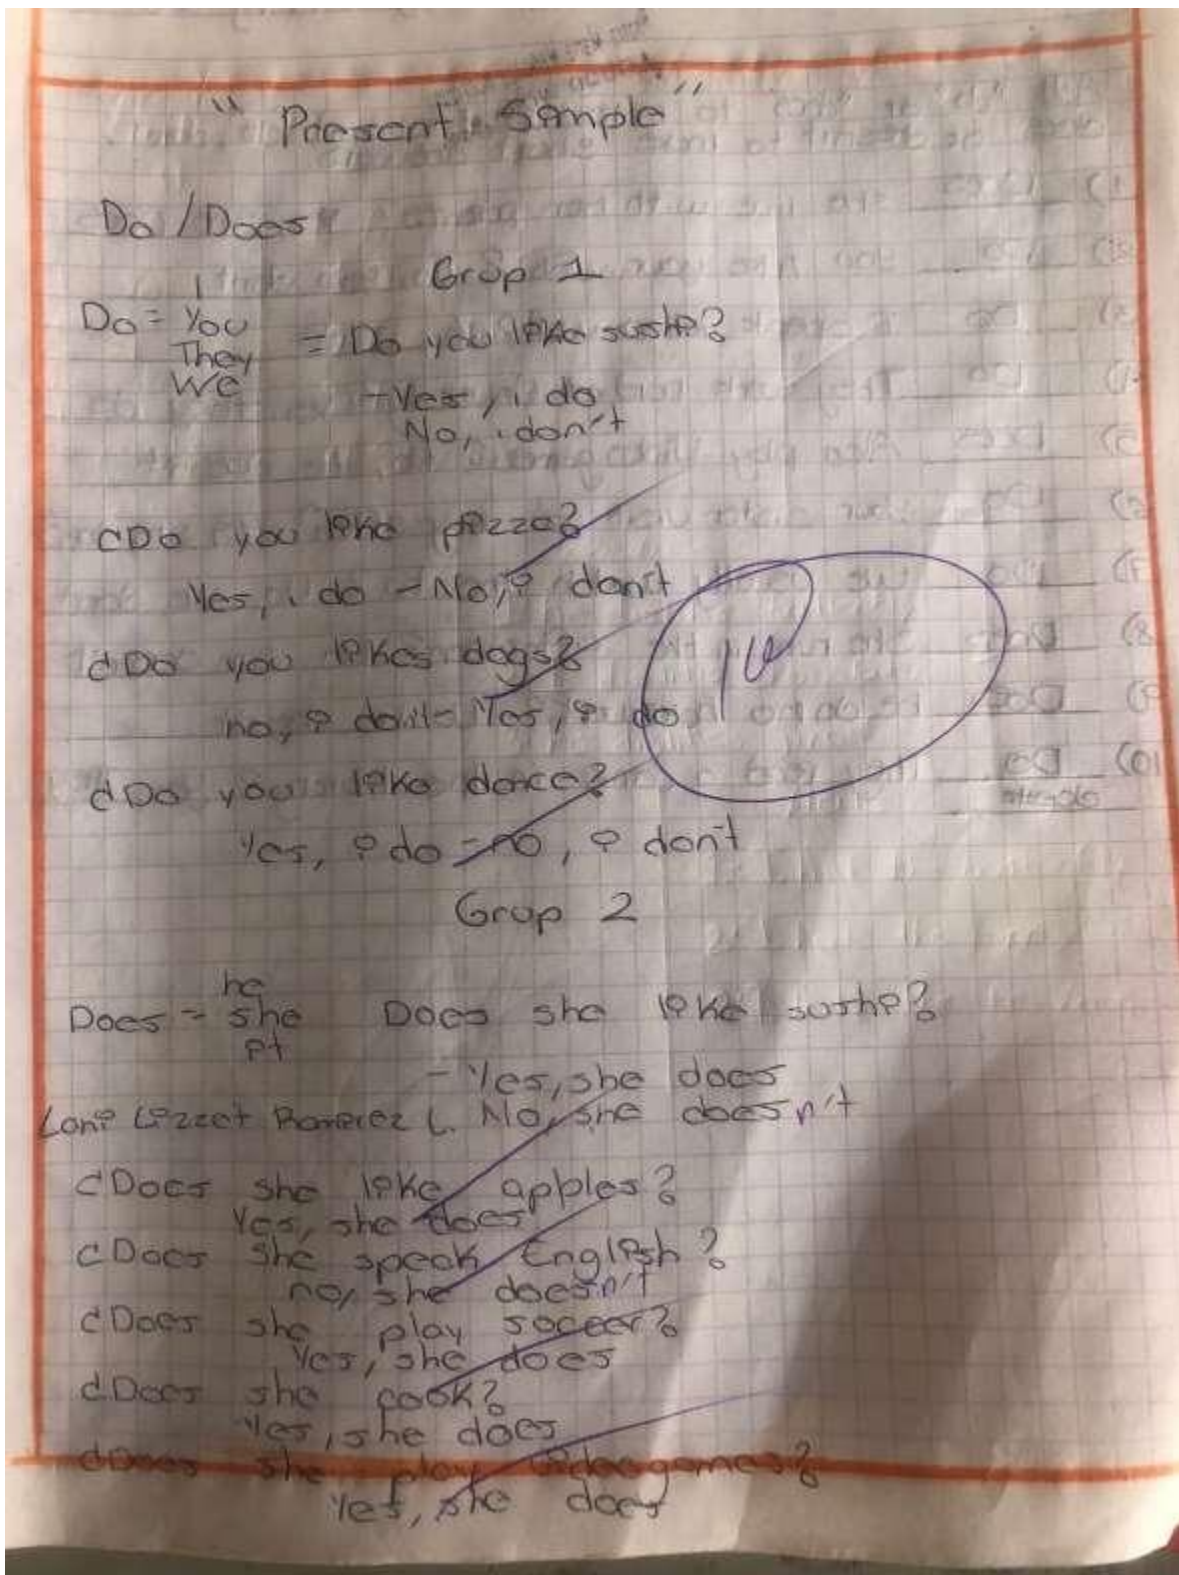 "Present Simple"
Do / Does
Grup 1
I
Do = You
They
We
= Do you like sushi?
- Yes, i do
No, i don't
¿Do you like pizza?
Yes, i do - No, i don't
¿Do you likes dogs?
no, i don't - Yes, i do
¿Do you like dance?
Yes, i do - no, i don't
10
Grup 2
he
Does = she
it
Does she like sushi?
- Yes, she does
No, she doesn't
Lizzet Ramirez L.
¿Does she like apples?
Yes, she does
¿Does she speak English?
no, she doesn't
¿Does she play soceer?
Yes, she does
¿Does she cook?
Yes, she does
¿Does she play videogames?
Yes, she does